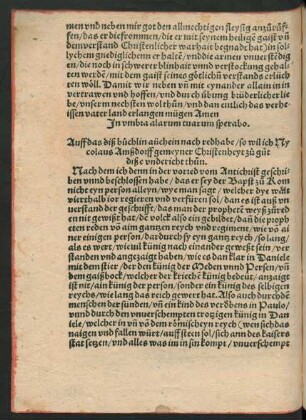 men vnd neben mir got den allmechtigen fleysig anzůrůf-
fen/das er die frommen/die er mit seynem heilige̅ gaist vn̅
den verstand Christenlicher warhait begnadt hat/in söl-
lychem gnediglichem er halte̅/vnd die armen vnuerstendig
en/die noch in schwerer blinhait vnnd verstockung gehal-
ten werde̅/mit dem gaist seines götlichn̅ verstands erlüch
ren wöll. Damit wir neben vn̅ mit eynander allain in in
vertrawen vnd hoffen/vnd durch übung brüderlicher lie
be/vnserm nechsten wol thůn/vnd dan entlich das verhe-
issen vater land erlangen mügen Amen
In vmbra alarum tuarum sperabo.
Auff das diß büchlin auch ein nach red habe/so wil ich Ny
colaus Amßdorff gemeyner Christenheyt zů gůt
diße vnderricht thůn.
Nach dem ich denn in der vorred vom Antichrist geschri
ben vnnd beschlossen habe/das er sey der Bapst zů Rom
nicht eyn person alleyn/wye man sagt/welcher dye wält
vierthalb ior regieren vnd verfüren sol/das es ist auß vn
uerstand der geschrifft/das man der prophete̅ weyß zů re
en nit gewißt hat/de̅ volck also ein gebildet/dan̅ die proph
eten reden vō aim ganzen reych vnd regiment/wie vō ai
ner einigen person/dardurch sy eyn ganz reych/so lang/
als es wort/wie vil künig nach einander seind gewest/ver
standen vnd angezaigt haben/wie es dan klar in Daniele
mit dem stier/der den künig der Meden vnnd Persen/vn̅
dem gaißbock/welcher der kriech̅e künig bedeut/anzaigt
ist nit/ain künig der person/sonder ein künig des selbigen
reychs/wie lang das reich gewert hat. Also auch durch de̅
menschen der sünden/vn̅ ein kind des verdöbens in Paulo/
vnnd durch den vnuerschempten trotzigen künig in Dan
iele/welcher in vn̅ vō dem römischeyn reych/wen sich das
naigen vnd fallen würt/auff steen sol/sich ann des kaisers
stat setzen/vnd alles was im in sin kompt/vnuerschempt